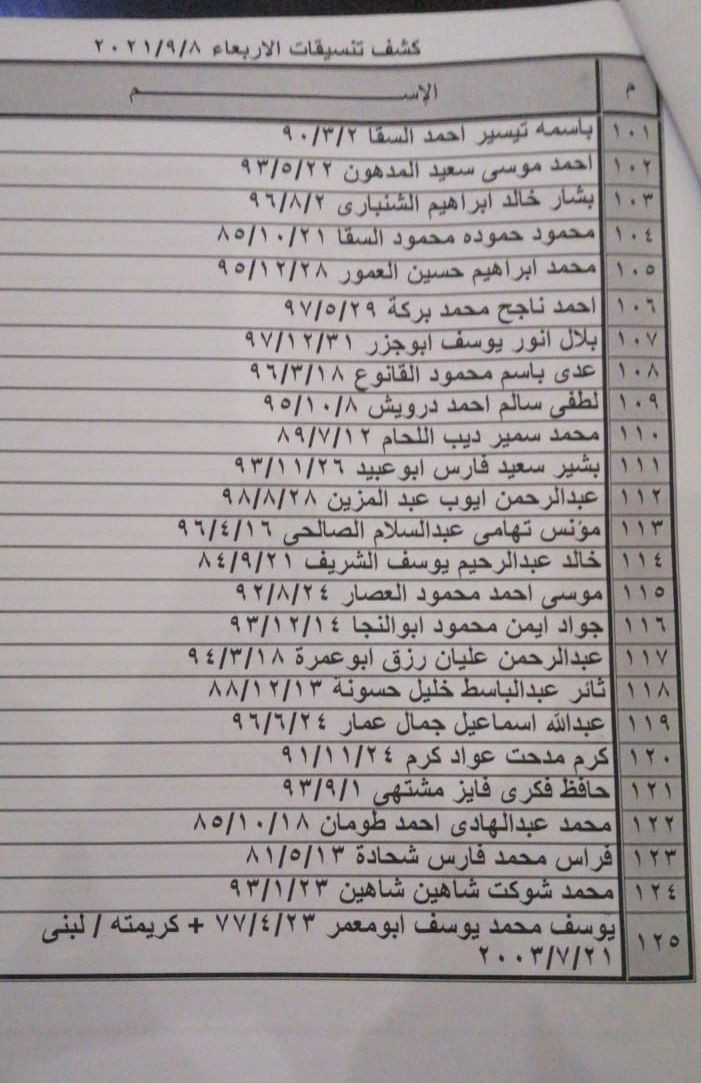 كشف تنسيقات الاربعاء ٢٠٢١/٩/٨
م الإســـــــــــــم
١٠١ باسمه تيسير احمد السقا ٩٠/٣/٢
١٠٢ احمد موسى سعيد المدهون ٩٣/٥/٢٢
١٠٣ بشار خالد ابراهيم الشنبارى ٩٦/٨/٢
١٠٤ محمود حموده محمود السقا ٨٥/١٠/٢١
١٠٥ محمد ابراهيم حسين العمور ٩٥/١٢/٢٨
١٠٦ احمد ناجح محمد بركة ٩٧/٥/٢٩
١٠٧ بلال انور يوسف ابوجزر ٩٧/١٢/٣١
١٠٨ عدى باسم محمود القانوع ٩٦/٣/١٨
١٠٩ لطفى سالم احمد درويش ٩٥/١٠/٨
١١٠ محمد سمير ديب اللحام ٨٩/٧/١٢
١١١ بشير سعيد فارس ابوعبيد ٩٣/١١/٢٦
١١٢ عبدالرحمن ايوب عبد المزين ٩٨/٨/٢٨
١١٣ مؤنس تهامى عبدالسلام الصالحى ٩٦/٤/١٦
١١٤ خالد عبدالرحيم يوسف الشريف ٨٤/٩/٢١
١١٥ موسى احمد محمود العصار ٩٢/٨/٢٤
١١٦ جواد ايمن محمود ابوالنجا ٩٣/١٢/١٤
١١٧ عبدالرحمن عليان رزق ابوعمرة ٩٤/٣/١٨
١١٨ ثائر عبدالباسط خليل حسونة ٨٨/١٢/١٣
١١٩ عبدالله اسماعيل جمال عمار ٩٦/٦/٢٤
١٢٠ كرم مدحت عواد كرم ٩١/١١/٢٤
١٢١ حافظ فكرى فايز مشتهى ٩٣/٩/١
١٢٢ محمد عبدالهادى احمد طومان ٨٥/١٠/١٨
١٢٣ فراس محمد فارس شحادة ٨١/٥/١٣
١٢٤ محمد شوكت شاهين شاهين ٩٣/١/٢٣
١٢٥ يوسف محمد يوسف ابومعمر ٧٧/٤/٢٣ + كريمته / لبنى
٢٠٠٣/٧/٢١